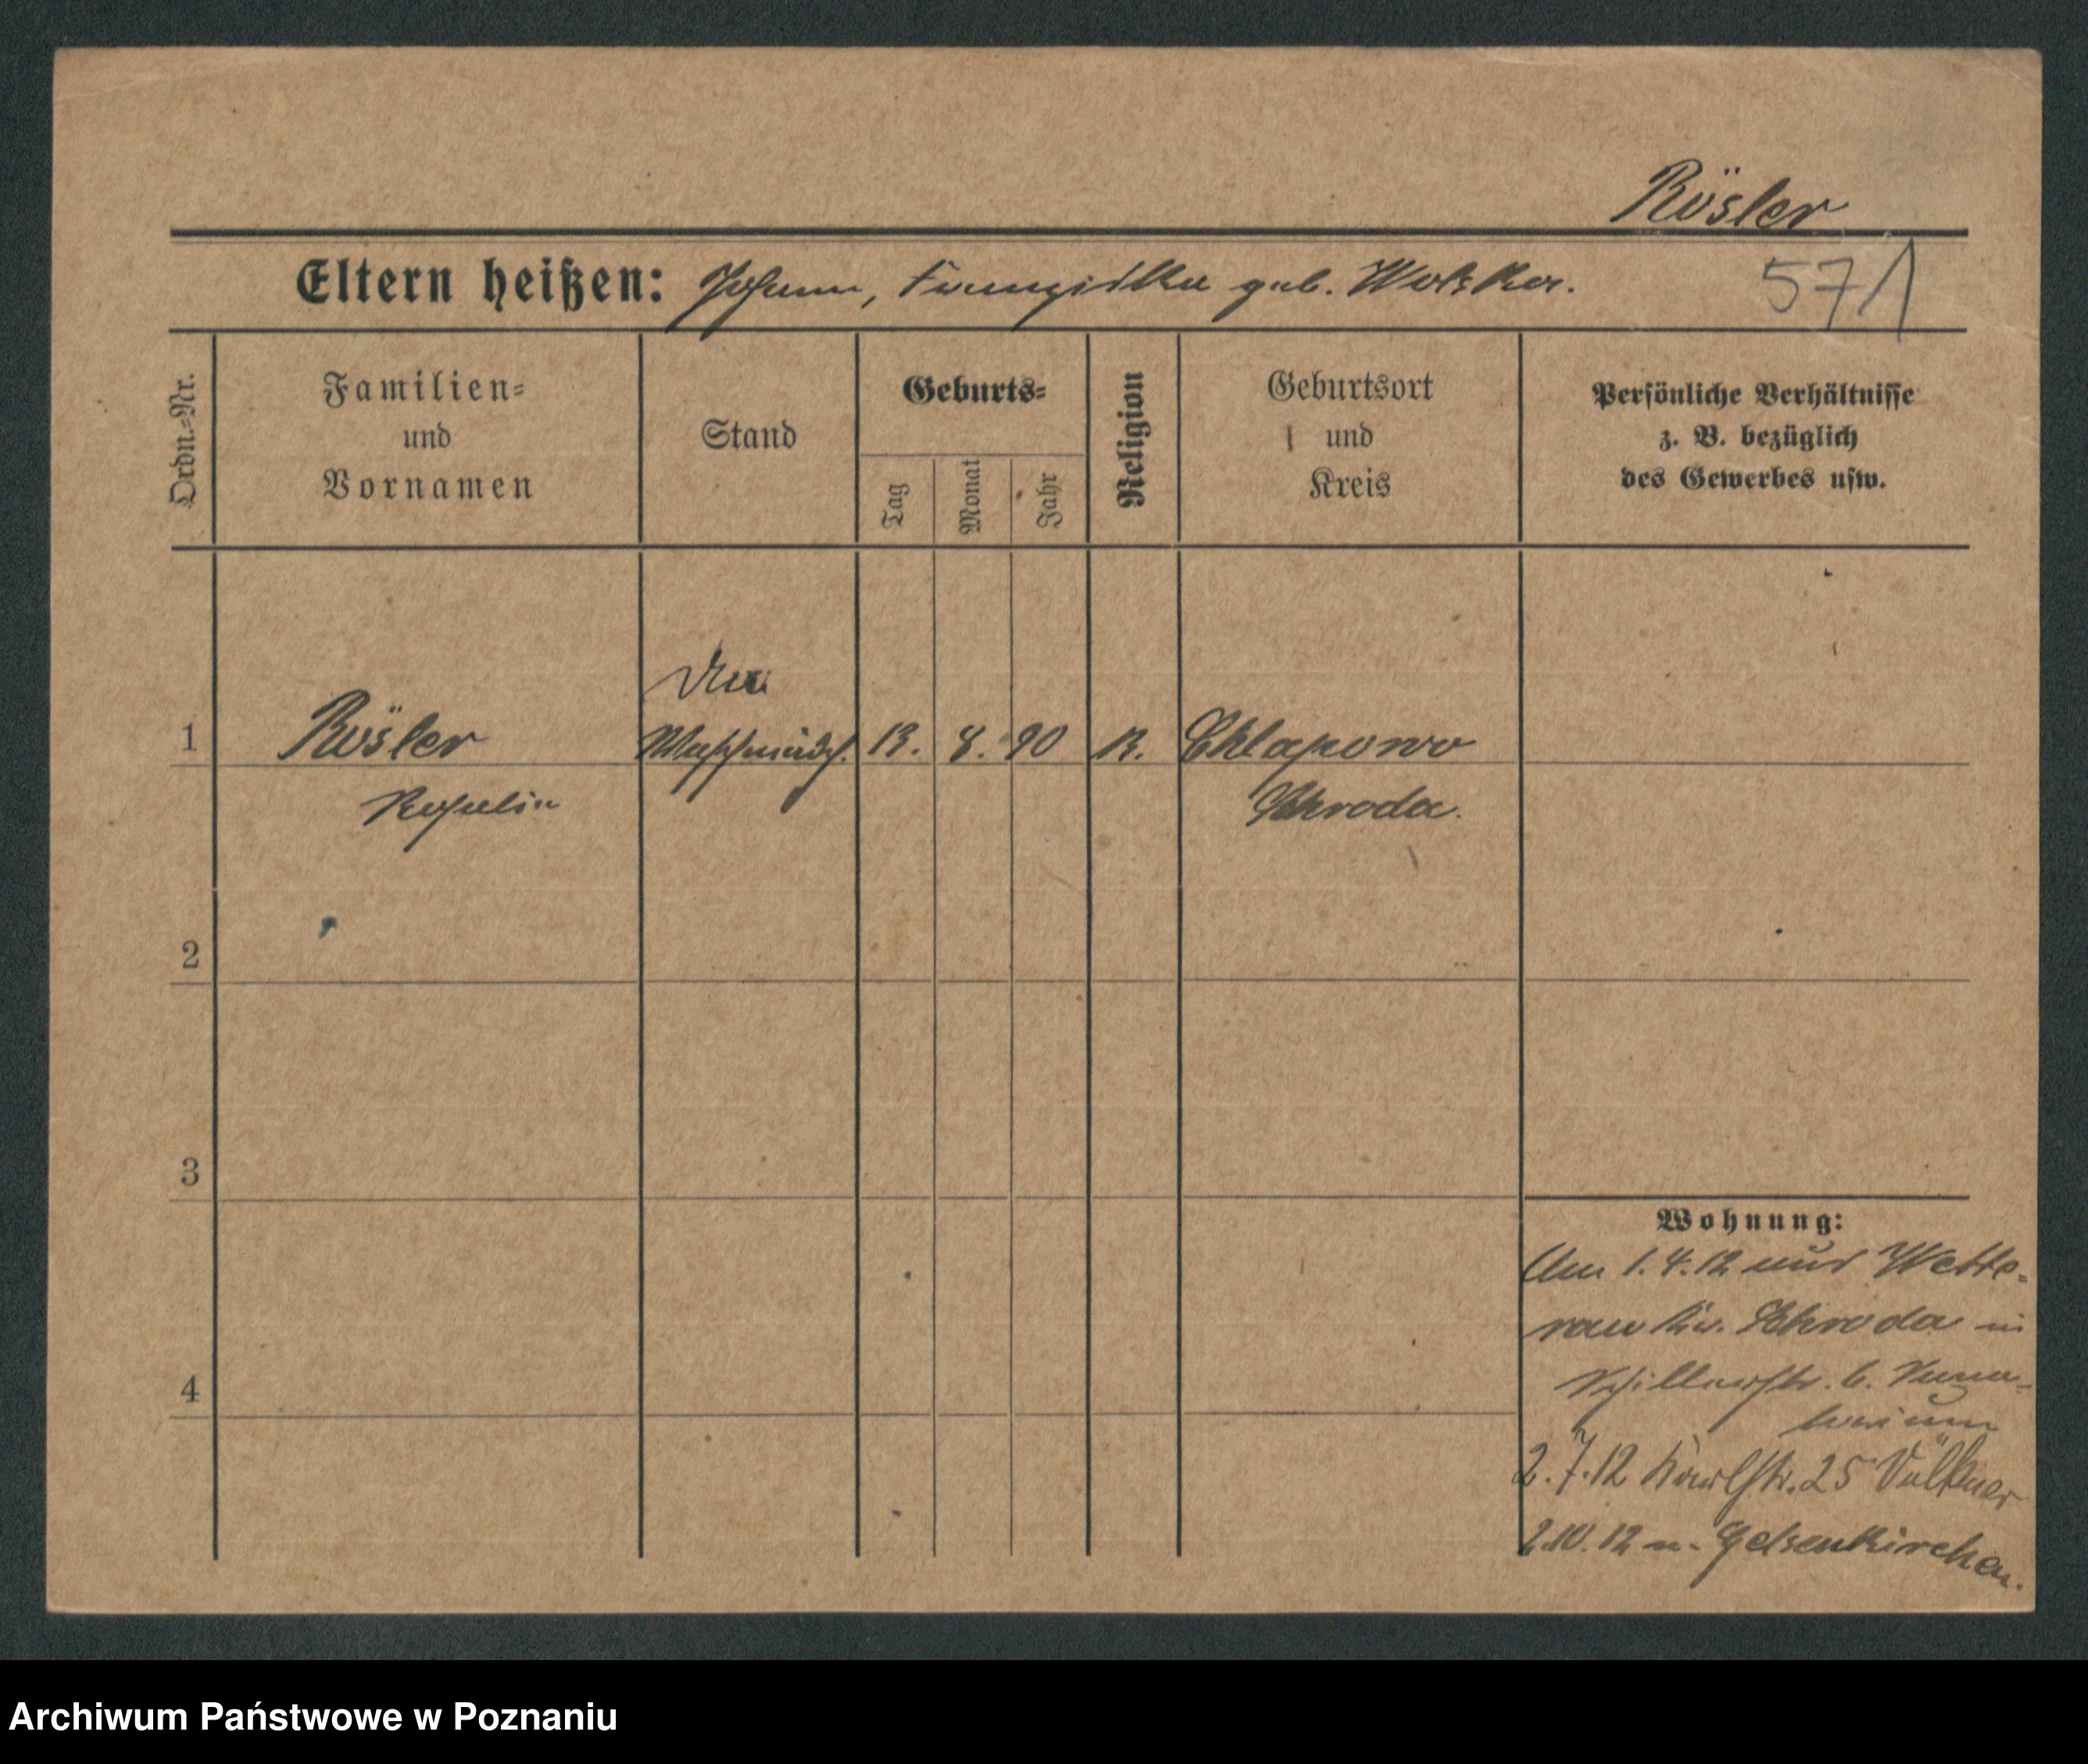 Rösler
Eltern heißen: Johann, Franziska geb. 571
Ordn.-Nr.
Familien=
und
Vornamen
Stand
Geburts=
Tag
Monat
Jahr
Religion
Geburtsort
und
Kreis
Persönliche Verhältnisse
z. B. bezüglich
des Gewerbes usw.
1 Rösler 8. 90 K. Chlapowo
Schroda.
2
3
4
Wohnung:
1.4.12 aus
Schroda in
Schillerstr. 6.
2.7.12 Karlstr. 25
2.10.12 n. Gelsenkirchen.
Archiwum Państwowe w Poznaniu